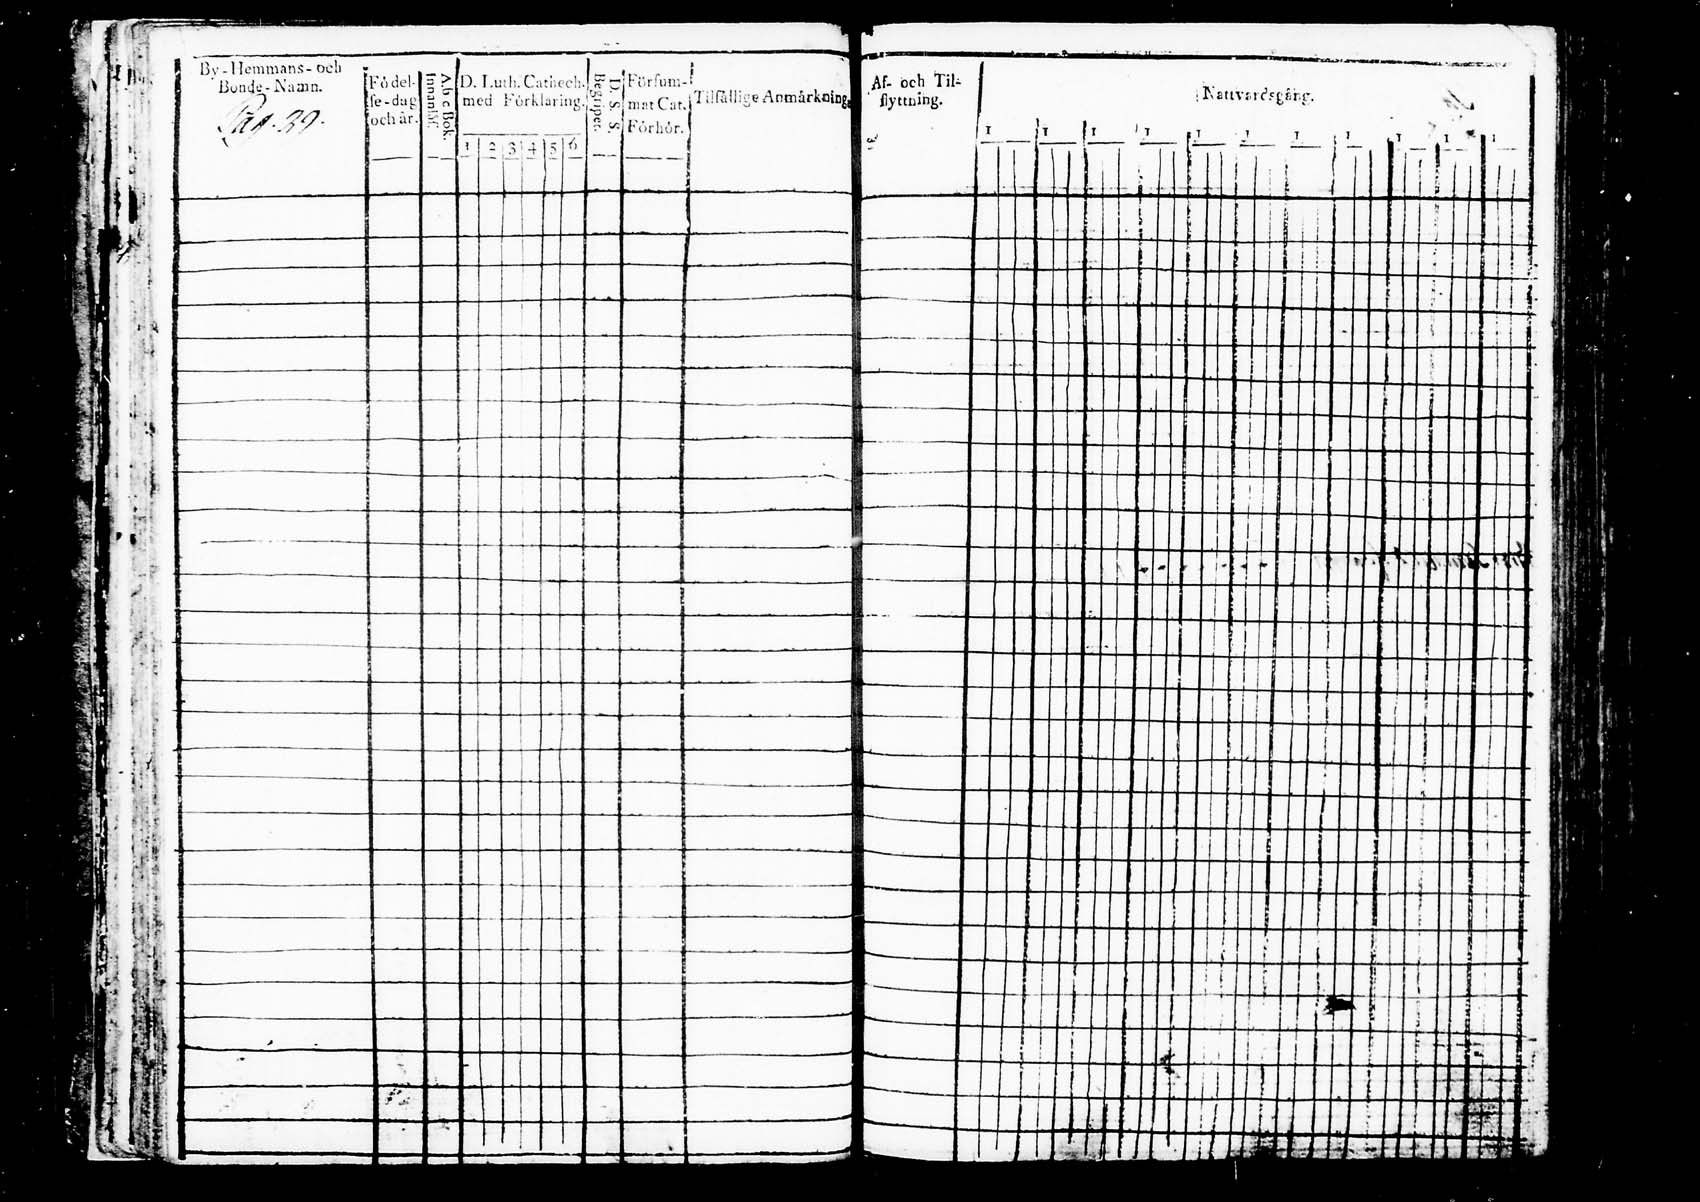 By-Hemmans-och
Bonde-Namn.
Pag. 39.
Födel-
se-dag
och år.
A b c Bok.
Innanläs.
D. Luth. Cathech.
med Förklaring.
1 2 3 4 5 6
D. S. S.
Begreper.
Försum-
mat Cat.
Förhör.
Tilfällige Anmärkning.
Af- och Til-
flyttning.
Nattvardsgång.
1 1 1 1 1 1 1 1 1 1 1